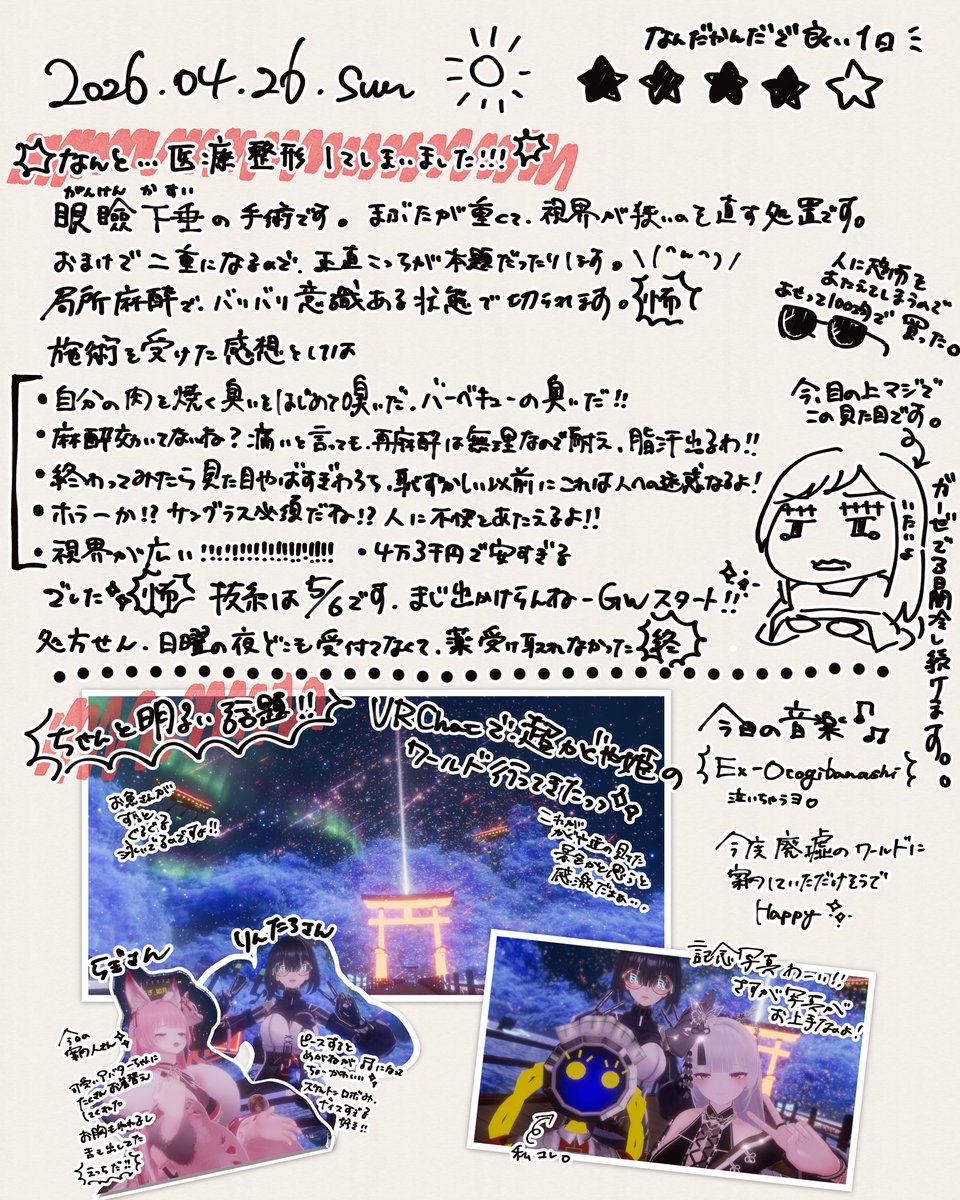 なんだかんだで良い1日
2026.04.26.sun
なんと…医療整形してしまいました!!!
がんけん かすい
眼瞼下垂の手術です。まぶたが重くて、視界が狭いのを直す処置です。
おまけで二重になるので、正直こっちが本題だったりします。\(^ω^)/
局所麻酔で、バリバリ意識ある状態で切られます。怖
人に恐怖を
あたえてしまうので
あせって100均で買った。
施術を受けた感想としては
・自分の肉を焼く臭いをはじめて嗅いだ、バーベキューの臭いだ!!
・麻酔効いてないね?痛いと言っても、再麻酔は無理なので耐え、脂汗出るわ!!
・終わってみたら見た目やばすぎわろち、恥ずかしい以前にこれは人への迷惑なるよ!
・ホラーか!?サングラス必須だね!?人に不快をあたえるよ!!
・視界が広い!!!!!!!!!!!!!!!!!! ・4万3千円で安すぎる
でした 怖 抜糸は5/6です、まじ出かけらんねーGWスタート!!
処方せん、日曜の夜どこも受付てなくて、薬受け取れなかった 終
今、目の上マジで
この見た目です。
いたいよ
ガーゼでる目開金し続けます。。
ちゃんと明るい話題!!
VRChatで、超かぐや姫の
ワールド行ってきたっっ
お魚さんが
ずらっと
ぐるぐる
泳いでるのですよ!!
これが
かぐや達の見てた
景色かと思うと
感激だぁぁ…
今日の音楽♪♫
{Ex-Otogibanashi}
泣いちゃうヨ。
今度廃墟のワールドに
案内していただけそうで
Happy
ちぎさん
りんたろさん
今日の
案内人さん
可愛いアバターちゃんに
たくさんお着替え
してくれた
お胸もやわるし
まし出してた
えっちだ!!
ピースすると
めがねが♫になって
ちょーかわいい
スケルトンロボみ、
ナイスすぎる
好き!!
記念写真わーい!!
さすが写真が
お上手なのよ!
私コレ。